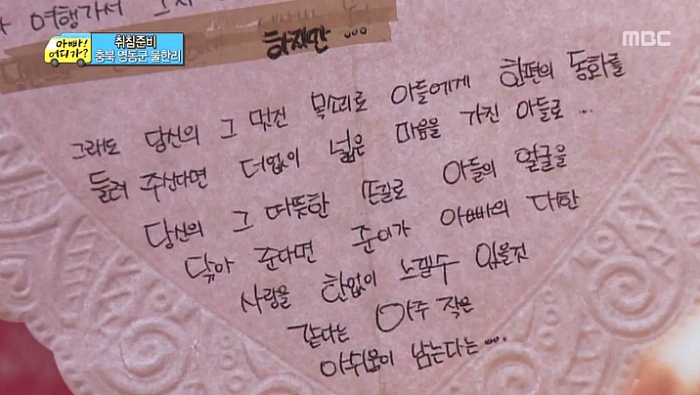 여행가서
아빠! 어디가?
취침준비
충북 영동군 물한리
MBC
하지만 ...
그래도 당신의 그 멋진 목소리로 아들에게 한편의 동화를
들려 주신다면 더없이 넓은 마음을 가진 아들로 ...
당신의 그 따뜻한 아들의 얼굴을
닦아 준다면 준이가 아빠의 대한
사랑을 한없이 느낄수 있을것
같다는 아주 작은
아쉬움이 남는다는....